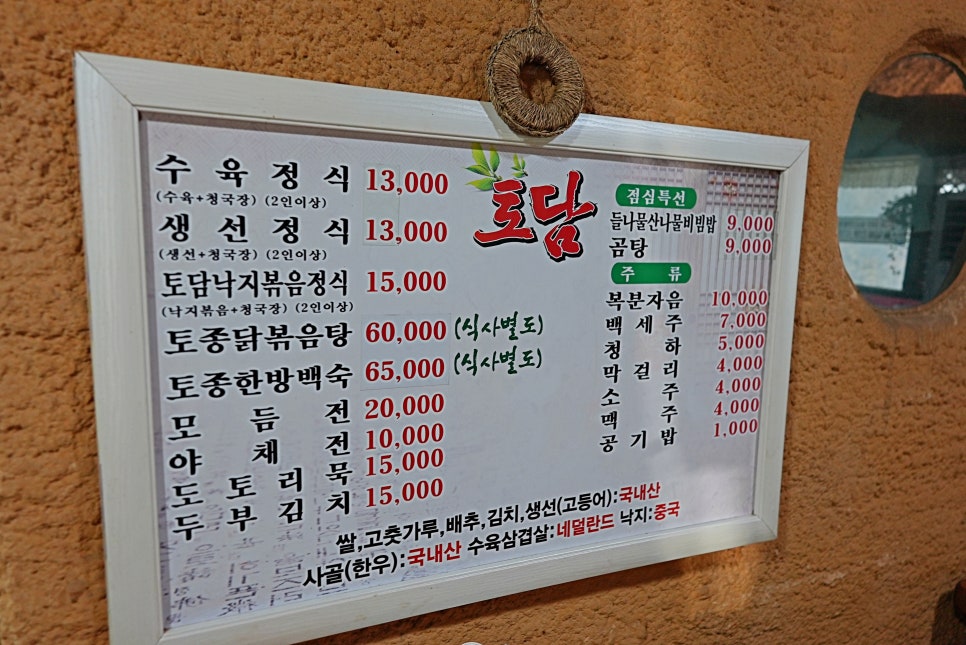 수육정식 13,000
(수육+청국장) (2인이상)
생선정식 13,000
(생선+청국장) (2인이상)
토담낙지볶음정식 15,000
(낙지볶음+청국장) (2인이상)
토종닭볶음탕 60,000 (식사별도)
토종한방백숙 65,000 (식사별도)
모듬전 20,000
야채전 10,000
도토리묵 15,000
두부김치 15,000
토담
점심특선
들나물산나물비빔밥 9,000
곰탕 9,000
주류
복분자음 10,000
백세주 7,000
청하 5,000
막걸리 4,000
소주 4,000
맥주 4,000
공기밥 1,000
쌀,고춧가루,배추,김치,생선(고등어):국내산
사골(한우):국내산 수육삼겹살:네덜란드 낙지:중국